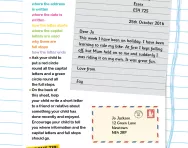 where the address
is written
where the date is
written
how the letter starts
where the capital
letters are used
why there are
full stops
how the letter ends
• Ask your child to
put a red circle
round all the capital
letters and a green
circle round all
the full stops.
• On the back of
this sheet, help
your child write a short letter
to a friend or relative about
something your child has
done recently and enjoyed.
Encourage your child to tell
you where information and the
capital letters and full stops
should go.
Essex
25th October 2016
Dear Jo,
This week I have been on holiday. I have been
learning to ride my bike. At first I kept falling
off, but Mum held on to me and suddenly I
was riding on my own. It was great fun.
Love from
Jo Jackson
12 Green Lane
Newtown